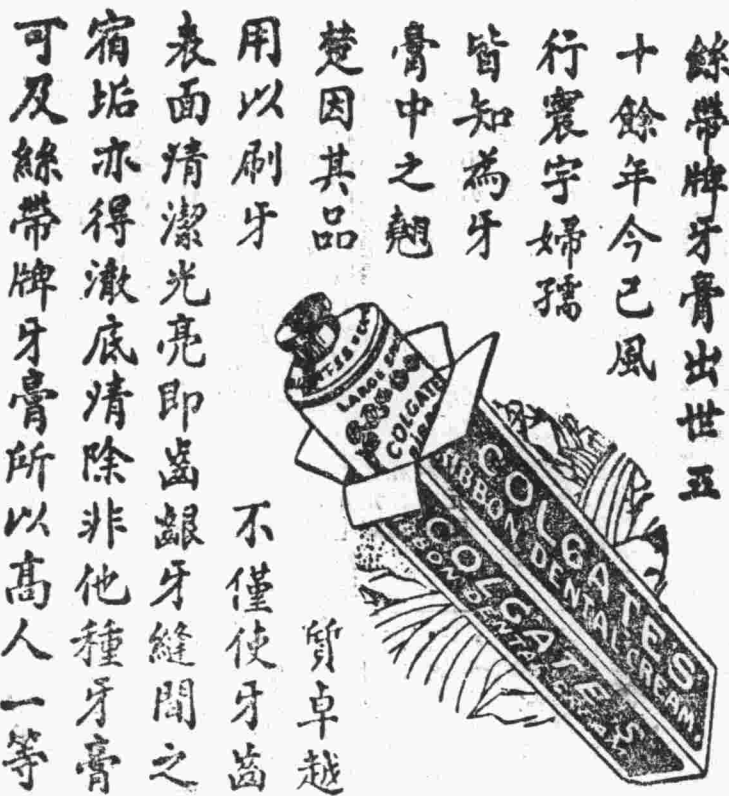 絲帶牌牙膏出世五
十餘年今已風
行寰宇婦孺
皆知為牙
膏中之翹
楚因其品質卓越
用以刷牙不僅使牙齒
表面清潔光亮即齒齦牙縫間之
宿垢亦得澈底清除非他種牙膏
可及絲帶牌牙膏所以高人一等
COLGATE
COLGATE'S
RIBBON DENTAL CREAM.
COLGATE'S
RIBBON DENTAL CREAM